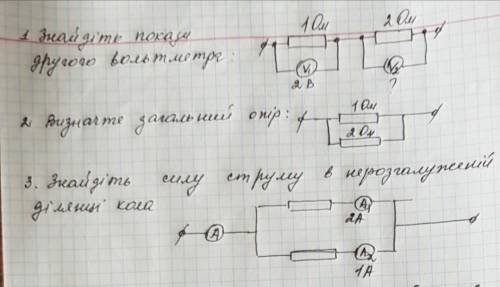 1 Ом 2 Ом
1. Знайдіть покази
другого вольтметра:
V₁ V₂
2 В ?
2. Визначте загальний опір:
1 Ом
2 Ом
3. Знайдіть силу струму в нерозгалуженій
ділянці кола
A₁
2А
A
A₂
1А